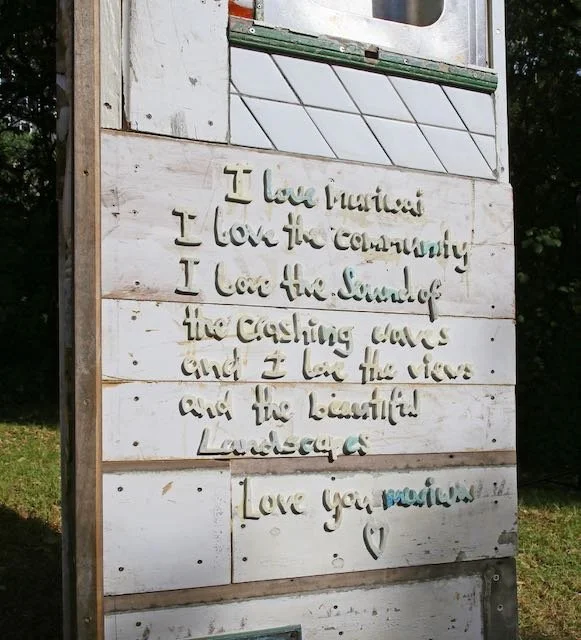 I love muriwai
I love the community
I love the Sound of
the crashing waves
and I love the views
and the beautiful
Landscapes
Love you muriwai